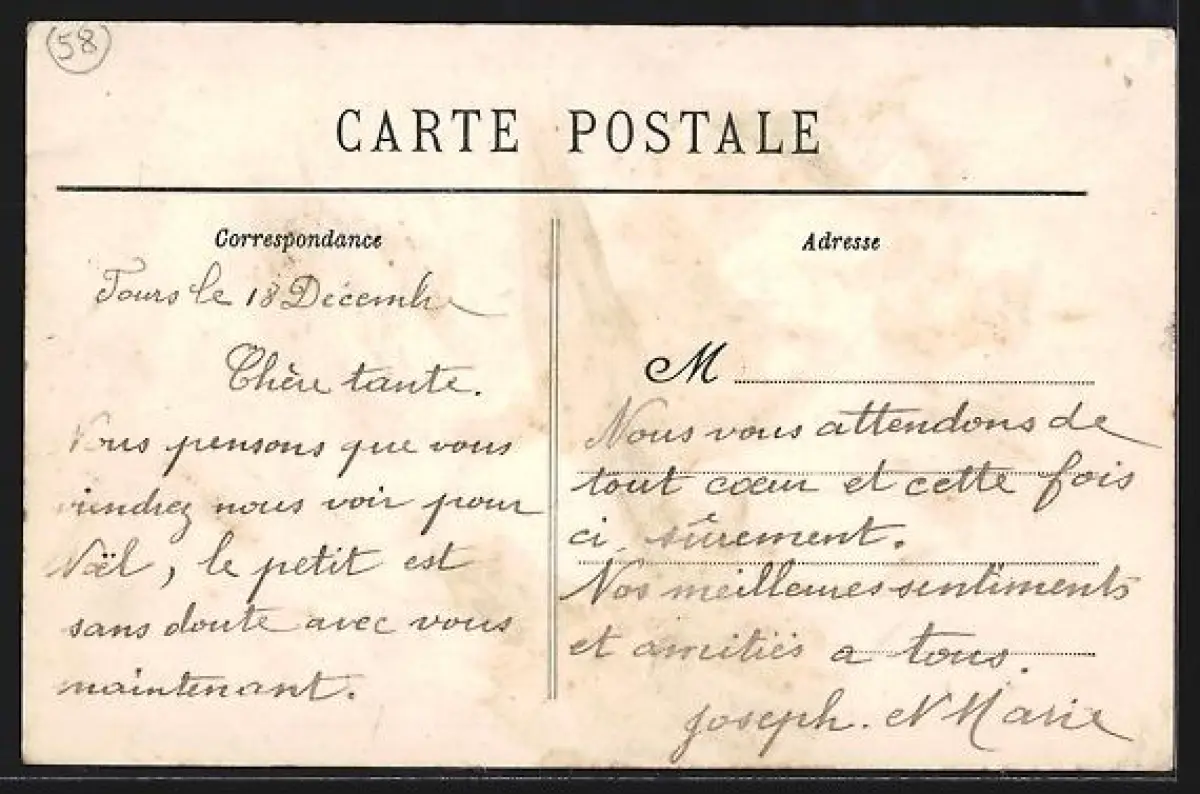 58
CARTE POSTALE
Correspondance
Tours le 18 Décembre
Chère tante.
Nous pensons que vous
viendrez nous voir pour
Noël, le petit est
sans doute avec vous
maintenant.
Adresse
M
Nous vous attendons de
tout cœur et cette fois
ci sûrement.
Nos meilleures sentiments
et amitiés a tous.
Joseph. et Marie